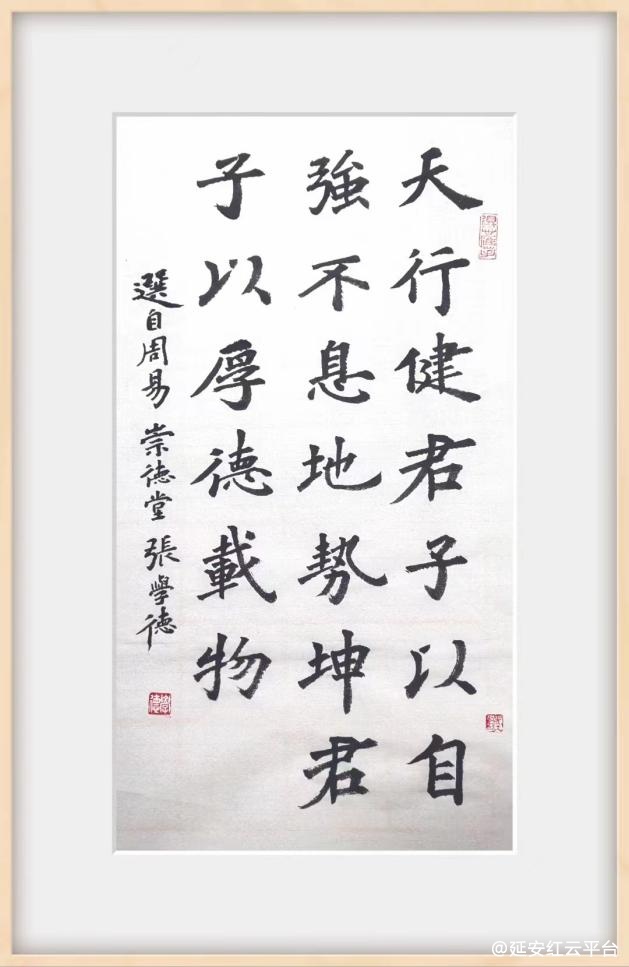 天行健君子以自
強不息地勢坤君
子以厚德載物
選自周易 崇德堂 張學德
@延安红云平台